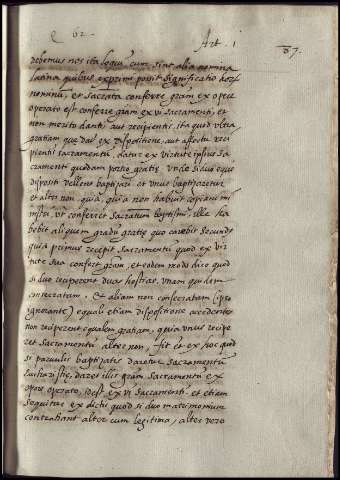 Q 62. Art. 1 87.
debemus nos ita loqui cum sint alia nomina
latina quibus exprimi possit significatio horū
nominū, et Sacrāta conferre grām ex opere
operato est conferre grām ex vi sacramenti, et
non merito dantis aut recipientis, ita quod ultra
gratiam quę datur ex dispositione, aut affectu reci
pientis sacramentū, datur ex virtute ipsius sa
cramenti quędam portio gratię. Unde si duo ęque
dispositi vellent baptizari, et unus baptizaretur
et alter non, quia, quia non habuit copiam mi
nistri, ut conferret Sacrām baptismi, ille ha
bebit aliquem gradū gratię quo carebit secundus
quia primus recepit sacramentū quod ex vir
tute sua confert grām, et eodem modo dico quod
si duo reciperent duas hostias, unam quidem
consecratam, et aliam non consecratam (ipso
ignorante) equali etiam dispositione accedentes
non reciperent equalem gratiam, quia unus recipe
ret Sacramentū alter non, fit ex hoc quod
si parvulis baptizatis daretur sacramentū
Eucharistię, daret illis grām Sacramentū ex
opere operato, idest ex vi sacramenti et etiam
sequitur ex dictis quod si duo matrimonium
contrahant alter cum legitima, alter vero